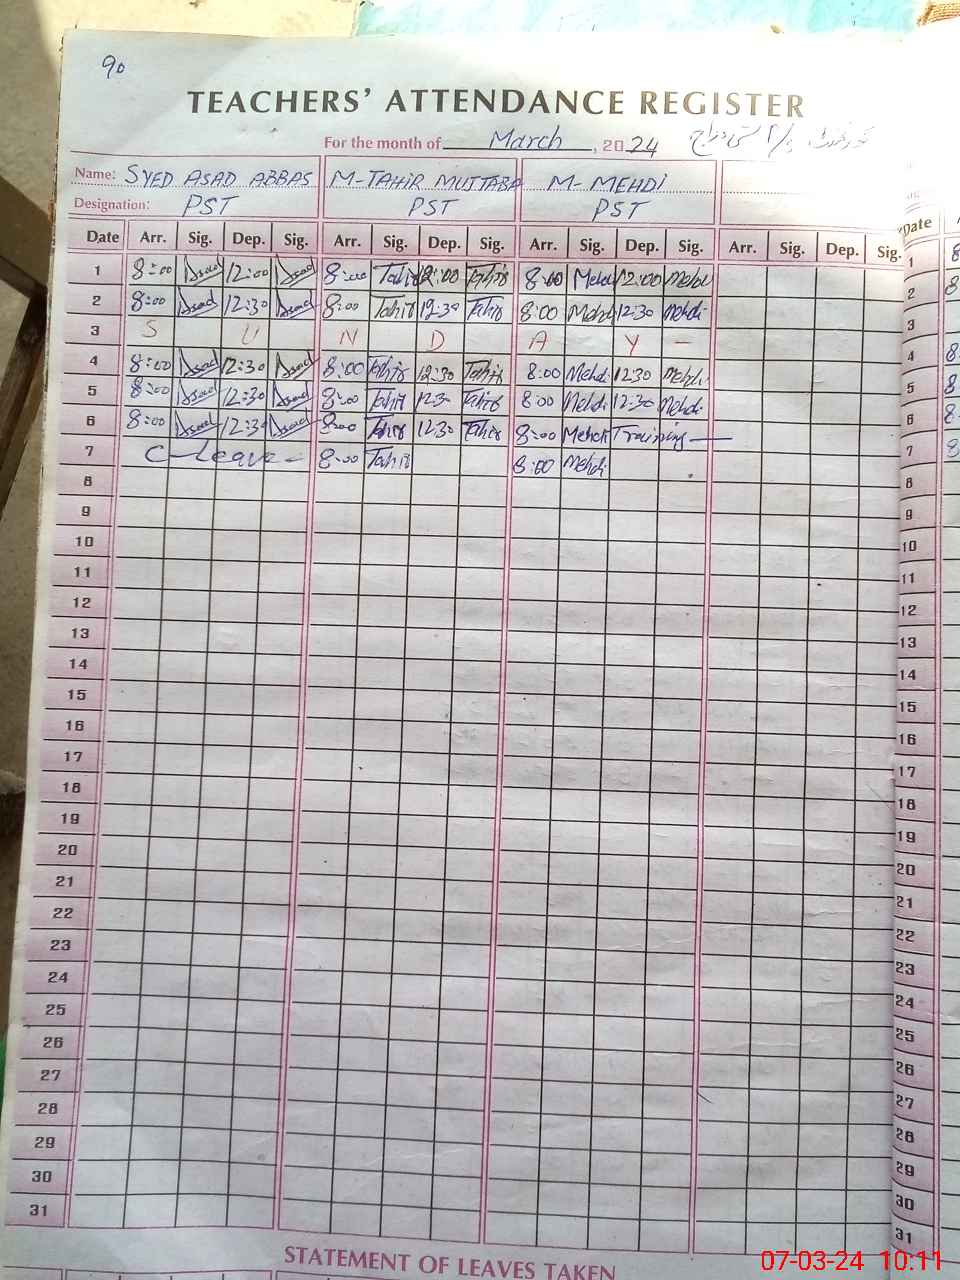 90
TEACHERS' ATTENDANCE REGISTER
For the month of March, 2024
Name: SYED ASAD ABBAS M-TAHIR MUJTABA M-MEHDI
Designation: PST PST PST
Date Arr. Sig. Dep. Sig. Arr. Sig. Dep. Sig. Arr. Sig. Dep. Sig. Arr. Sig. Dep. Sig. Date
1 8:00 Asad 12:00 Asad 8:00 Tahir 12:00 Tahir 8:00 Mehdi 12:00 Mehdi 1
2 8:00 Asad 12:30 Asad 8:00 Tahir 12:30 Tahir 8:00 Mehdi 12:30 Mehdi 2
3 S U N D A Y - 3
4 8:00 Asad 12:30 Asad 8:00 Tahir 12:30 Tahir 8:00 Mehdi 12:30 Mehdi 4
5 8:00 Asad 12:30 Asad 8:00 Tahir 12:30 Tahir 8:00 Mehdi 12:30 Mehdi 5
6 8:00 Asad 12:30 Asad 8:00 Tahir 12:30 Tahir 8:00 Mehdi Training 6
7 C-Leave- 8:00 Tahir 8:00 Mehdi 7
8 8
9 9
10 10
11 11
12 12
13 13
14 14
15 15
16 16
17 17
18 18
19 19
20 20
21 21
22 22
23 23
24 24
25 25
26 26
27 27
28 28
29 29
30 30
31 31
STATEMENT OF LEAVES TAKEN
07-03-24 10:11